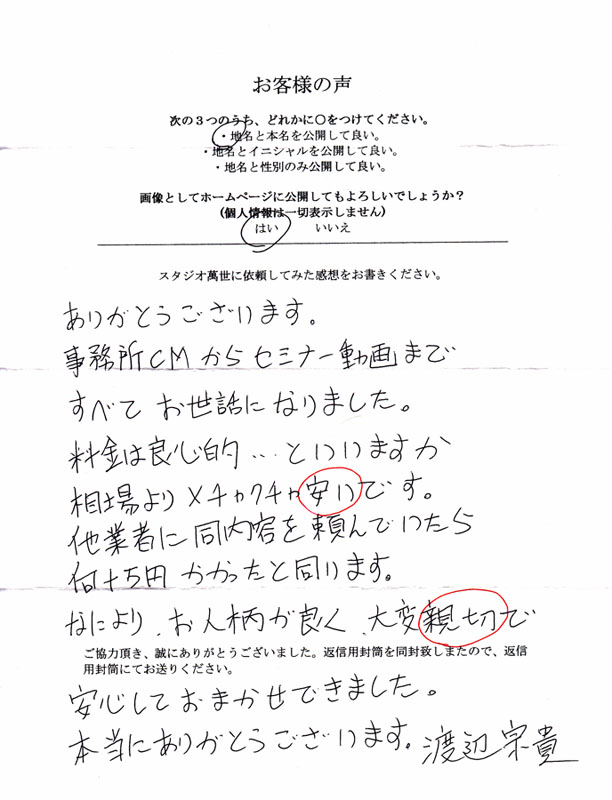 お客様の声
次の３つのうち、どれかに○をつけてください。
・地名と本名を公開して良い。
・地名とイニシャルを公開して良い。
・地名と性別のみ公開して良い。
画像としてホームページに公開してもよろしいでしょうか？
(個人情報は一切表示しません)
はい　　いいえ
スタジオ萬世に依頼してみた感想をお書きください。
ありがとうございます。
事務所CMからセミナー動画まで
すべてお世話になりました。
料金は良心的…といいますか
相場よりメチャクチャ安いです。
他業者に同内容を頼んでいたら
何十万円かかったと思います。
なにより、お人柄が良く、大変親切で
ご協力頂き、誠にありがとうございました。返信用封筒を同封致しまたので、返信
用封筒にてお送りください。
安心しておまかせできました。
本当にありがとうございます。渡辺宗貴